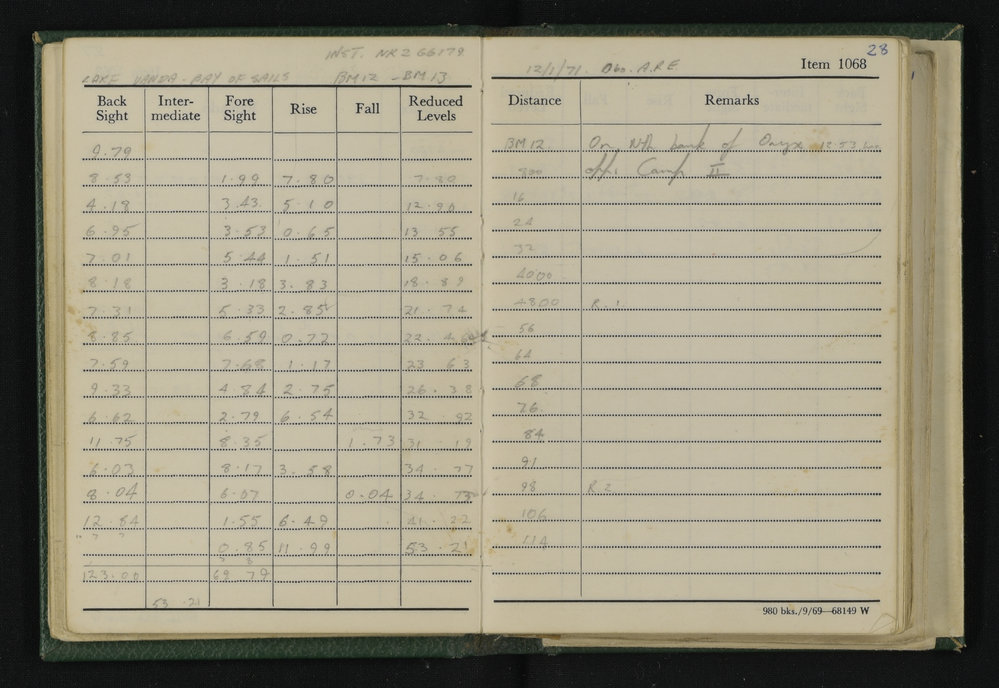 INST. NR2 66179
LAKE VANDA - BAY OF SAILS BM12 - BM13
Back Sight Inter-mediate Fore Sight Rise Fall Reduced Levels
9.79
8.53 1.99 7.80 7.80
4.18 3.43 5.10 12.90
6.95 3.53 0.65 13 55
7.01 5.44 1.51 15.06
8.18 3.18 3.83 18.89
7.31 5.33 2.85 21.74
8.85 6.59 0.72 22.46
7.59 7.68 1.17 23 63
9.33 4.84 2.75 26.38
6.62 2.79 6.54 32 92
11.75 8.35 1.73 31.19
6.03 8.17 3.58 34.77
8.04 6.07 0.04 34.73
12.84 1.55 6.49 41.22
0.85 11.99 53.21
123.00 69 79
53.21
28
12/1/71. Obs. A.R.E. Item 1068
Distance Remarks
BM12 On Nth bank of Onyx
800 opp. Camp II
16
24
32
4000
4800 R.1
56
64
68
76
84
91
98 R 2
106
114
980 bks./9/69—68149 W